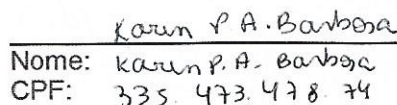 Karin P A. Barbosa
Nome: Karin P. A. Barbosa
CPF: 335. 473. 478. 74